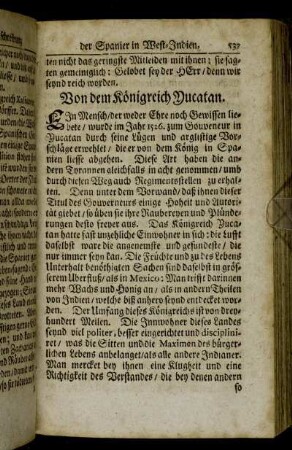 der Spanier in West-Indien. 537
ten nicht das geringste Mitleiden mit ihnen; sie sag-
ten gemeiniglich: Gelobet sey der HErr/ denn wir
seynd reich worden.
Von dem Königreich Yucatan.
EIn Mensch/ der weder Ehre noch Gewissen lie-
bete/ wurde im Jahr 1526. zum Gouverneur in
Yucatan durch seine Lügen und arglistige Vor-
schläge erwehlet/ die er von dem König in Spa-
nien liesse abgehen. Diese Art haben die an-
dern Tyrannen gleichfalls in acht genommen/ um
durch diesen Weg auch Regimentsstellen zu erhal-
ten. Denn unter dem Vorwand/ daß ihnen dieser
Titel des Gouverneurs einige Hoheit und Autori-
tät giebet/ so üben sie ihre Raubereyen und Plünde-
rungen desto freyer aus. Das Königreich Yuca-
tan hatte fast unzehliche Einwohner in sich: die Lufft
daselbst ware die angenemste und gesundeste/ die
nur immer seyn kan. Die Früchte und zu des Lebens
Unterhalt benöthigten Sachen sind daselbst in grös-
serem Uberfluß/ als in Mexico: Man trifft darinnen
mehr Wachs und Honig an/ als in andern Theilen
von Indien/ welche biß anhero seynd entdecket wor-
den. Der Umfang dieses Königreichs ist von drey-
hundert Meilen. Die Innwohner dieses Landes
seynd viel politer, besser eingerichtet und disciplini-
ret/ was die Sitten und die Maximen des bürger-
lichen Lebens anbelanget/ als alle andere Indianer.
Man mercket bey ihnen eine Klugheit und eine
Richtigkeit des Verstandes/ die bey denen andern
so